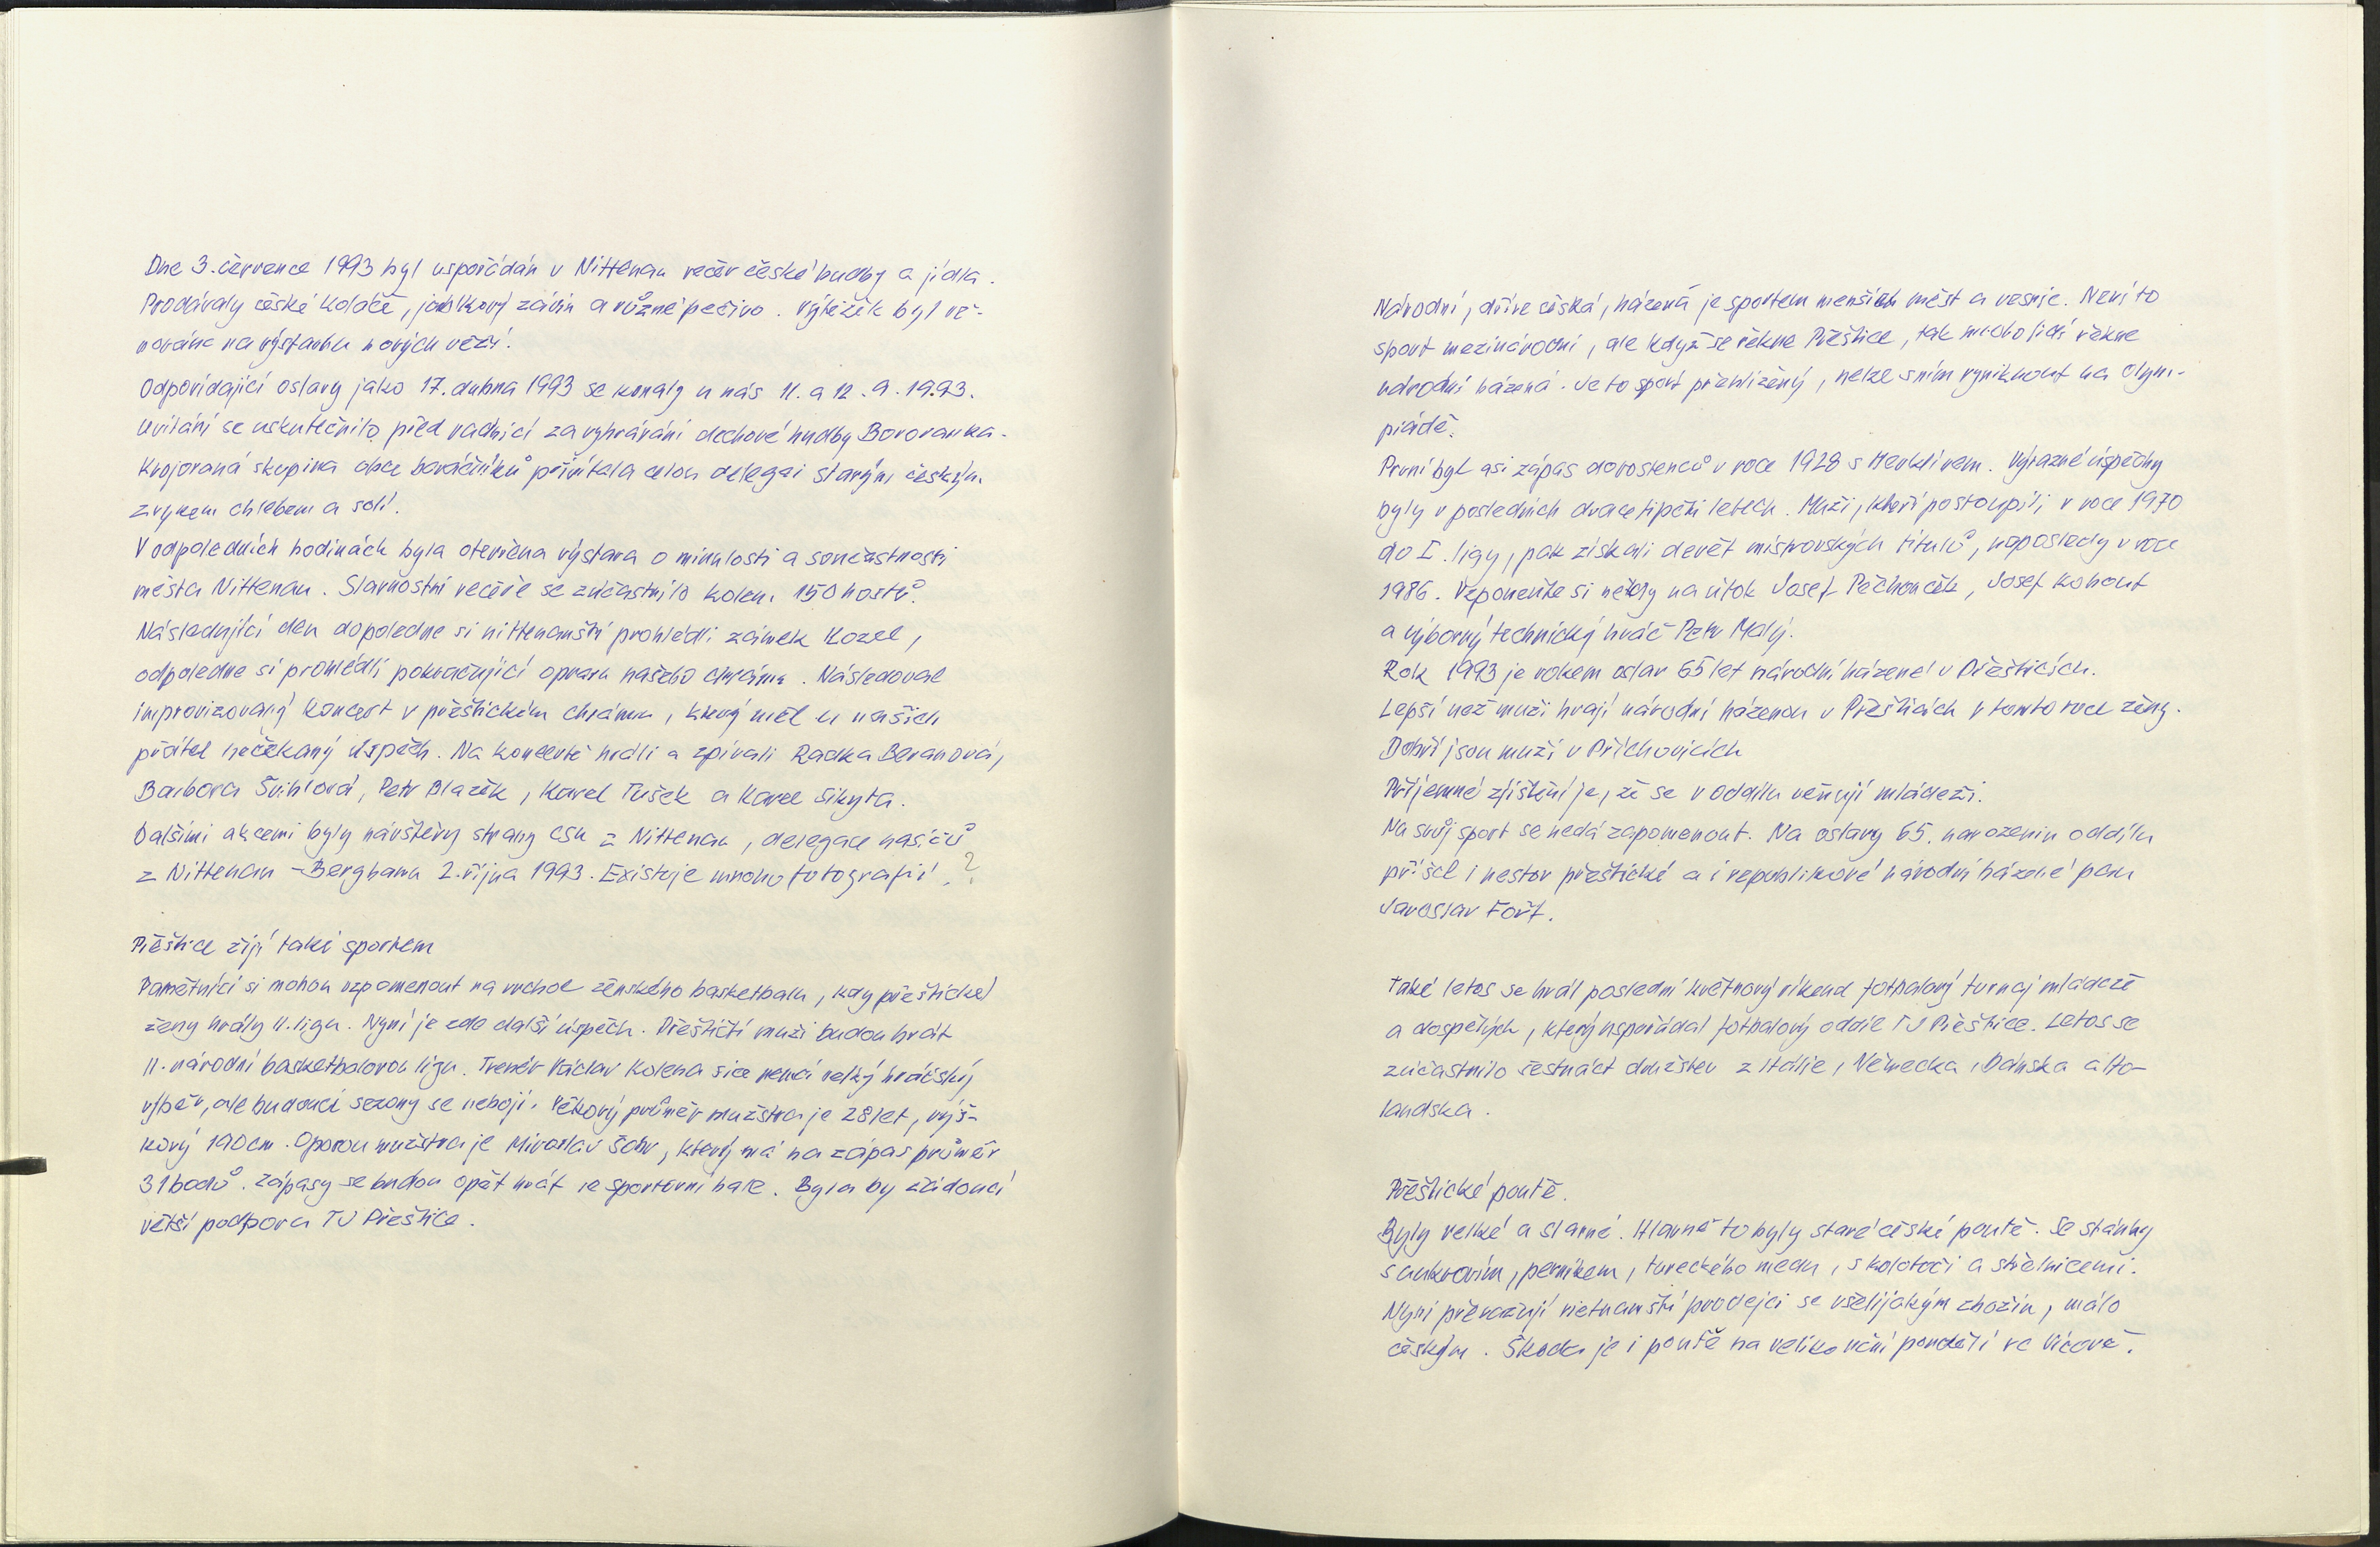 Dne 3. července 1993 byl uspořádán v Nittenau večer české hudby a jídla.
Prodávaly české koláče, jablkový závin a různé pečivo. Výtěžek byl vě-
nována na výstavbu nových věží.
Odpovídající oslavy jako 17. dubna 1993 se konaly u nás 11. a 12. 9. 1993.
Uvítání se uskutečnilo před radnicí za vyhrávání dechové hudby Bororanka.
Krojovaná skupina obce baráčníků přivítala celou delegai starým českým
zvykem chlebem a solí.
V odpoledních hodinách byla otevřena výstava o minulosti a součastnosti
města Nittenau. Slavnostní večeře se zúčastnilo kolem 150 hostů.
Následující den dopoledne si nittenauští prohlédli zámek Kozel,
odpoledne si prohlédli pokračující opravu našeho chrámu. Následoval
improvizovaný koncert v přeštickém chrámu, který měl u našich
přátel nečekaný úspěch. Na koncertě hráli a zpívali Radka Beranová,
Barbora Švihlová, Petr Blažek, Karel Tušek a Karel Sikyta.
Dalšími akcemi byly návštěvy strany CSU z Nittenau, delegace hasičů
z Nittenau - Berghamu 2. října 1993. Existuje mnoho fotografií. ?
Přeštice žijí také sportem
Pamětníci si mohou vzpomenout na vrchol ženského basketbalu, kdy přeštické
ženy hrály II. ligu. Nyní je zde další úspěch. Přeštičtí muži budou hrát
II. národní basketbalovou ligu. Trenér Václav Kolena sice nemá velký hráčský
výběr, ale budoucí sezony se nebojí. Věkový průměr mužstva je 28 let, výš-
kový 190 cm. Oporou mužstva je Miroslav Šatr, který má na zápas průměr
31 bodů. Zápasy se budou opět hrát ve sportovní hale. Byla by žádoucí
větší podpora TJ Přeštice.
Národní, dříve česká, házená je sportem menších měst a vesnic. Není to
sport mezinárodní, ale když se řekne Přeštice, tak mnoho lidí řekne
národní házená. Je to sport přehlížený, nelze s ním vyniknout na olym-
piádě.
První byl asi zápas dorostenců v roce 1928 s Merklínem. Výrazné úspěchy
byly v posledních dvacetipěti letech. Muži, kteří postoupili v roce 1970
do I. ligy, pak získali devět mistrovských titulů, naposledy v roce
1986. Vzpomeňte si někdy na útok Josef Pěchouček, Josef Kohout
a výborný technický hráč Petr Malý.
Rok 1993 je rokem oslav 65 let národní házené v Přešticích.
Lepší než muži hrají národní házenou v Přešticích v tomto roce ženy.
Dobří jsou muži v Příchovicích
Příjemné zjištění je, že se v oddílu věnují mládeži.
Na svůj sport se nedá zapomenout. Na oslavy 65. narozenin oddílu
přišel i nestor přeštické a i republikové národní házené pan
Jaroslav Fořt.
Také letos se hrál poslední květnový víkend fotbalový turnaj mládeže
a dospělých, který uspořádal fotbalový oddíl TJ Přeštice. Letos se
zúčastnilo šestnáct družstev z Itálie, Německa, Dánska a Ho-
landska.
Přeštické poutě.
Byly velké a slavné. Hlavně to byly staré české poutě. Se stánky
s cukrovím, perníkem, tureckého medu, s kolotoči a střelnicemi.
Nyní převažují vietnamští prodejci se všelijakým zbožím, málo
českým. Škoda je i poutě na velikonoční pondělí ve Vícově.